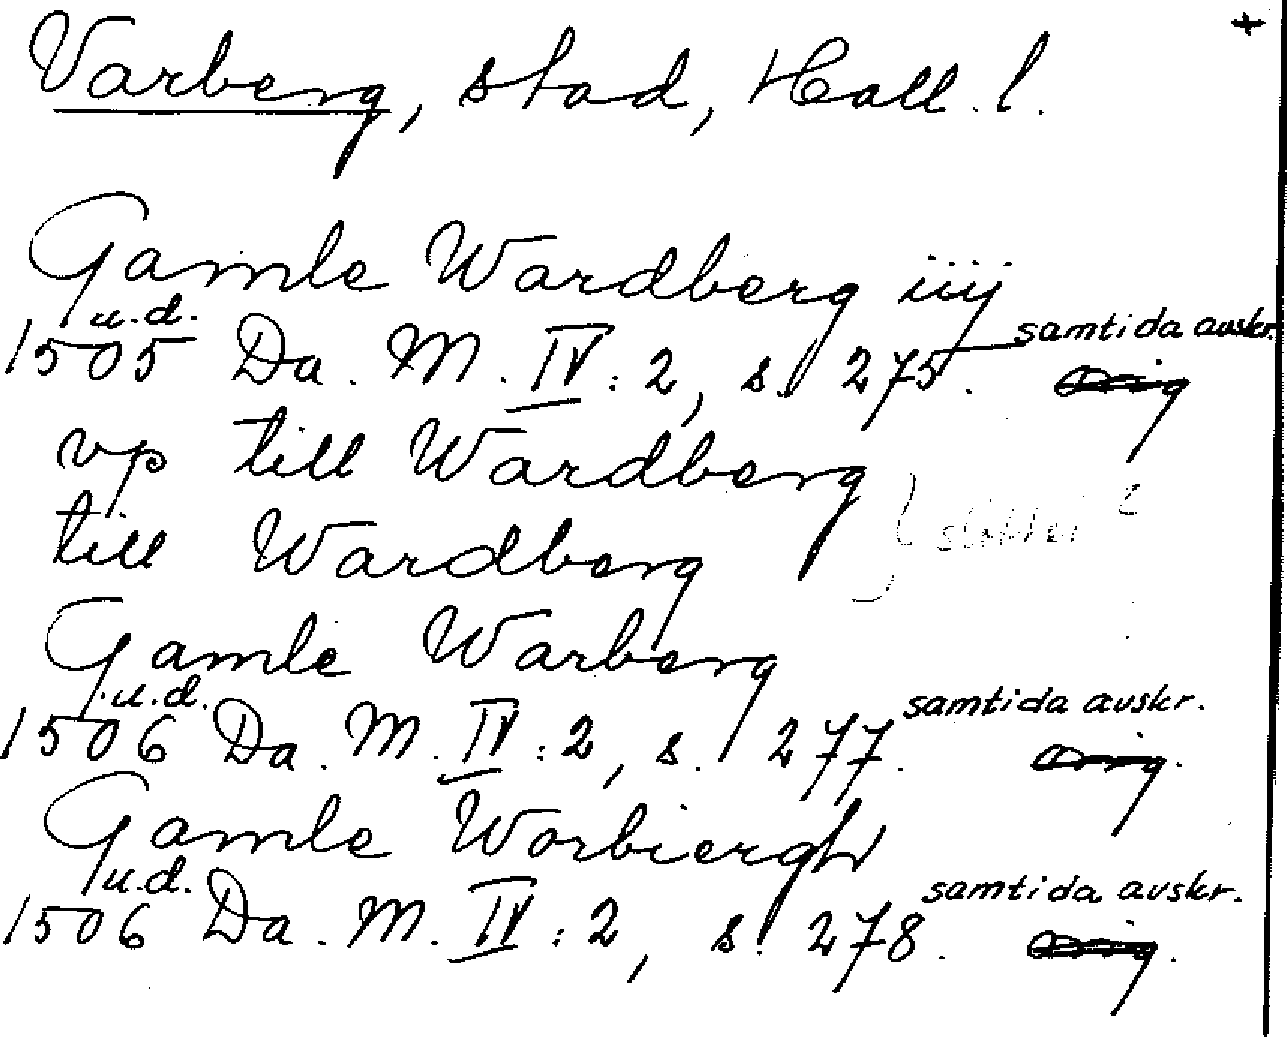 +
Varberg, stad, Hall. l.
Gamle Wardberg iiij
u.d. samtida avskr.
1505 Da. M. IV: 2, s. 275. orig
vp till Wardberg
till Wardberg } slottet?
Gamle Warberg
u.d. samtida avskr.
1506 Da. M. IV: 2, s. 277. orig.
Gamle Worbiergh
u.d. samtida avskr.
1506 Da. M. IV: 2, s. 278. orig.